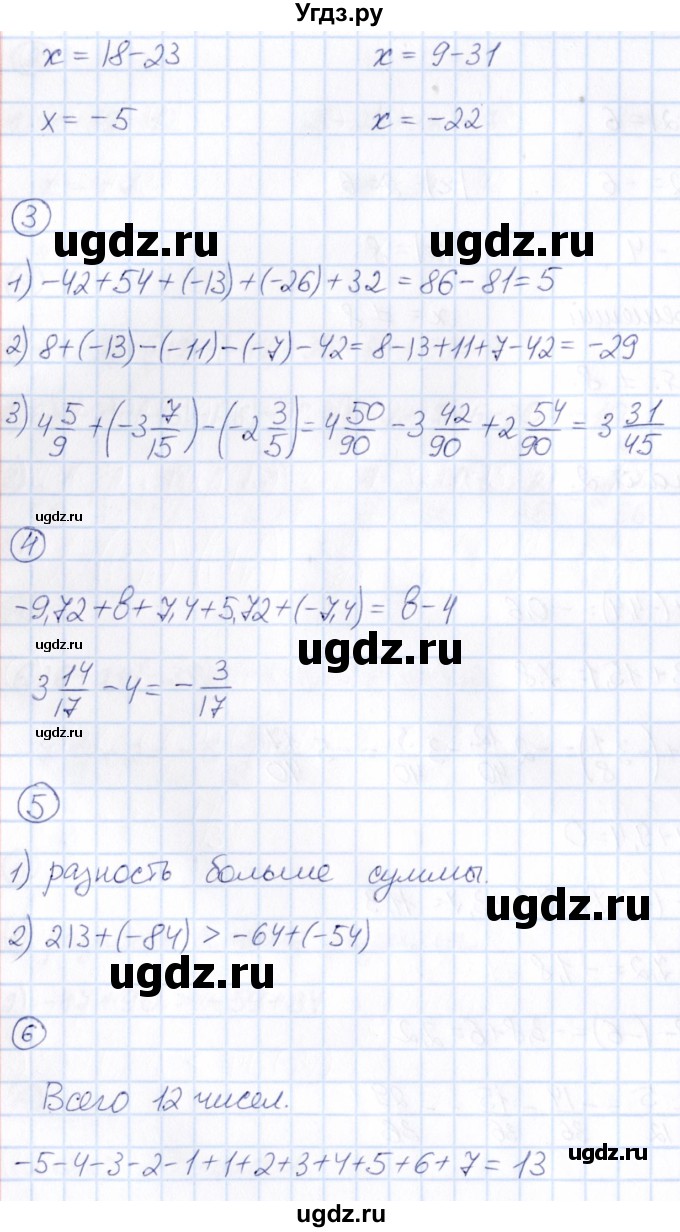 Угдз.ру
x = 18-23 x = 9-31
x = -5 x = -22
3
ugdz.ru ugdz.ru
1) -42+54+(-13)+(-26)+32 = 86-81=5
2) 8+(-13)-(-11)-(-7)-42= 8-13+11+7-42= -29
3) 4 5/9 +(-3 7/15)-(-2 3/5)= 4 50/90 -3 42/90 +2 54/90 = 3 31/45
ugdz.ru
4
ugdz.ru
-9,72+в+7,4+5,72+(-7,4)= в-4
ugdz.ru
ugdz.ru
3 14/17 -4= - 3/17
ugdz.ru
5
1) разность больше суммы.
ugdz.ru
2) 213+(-84) > -64+(-54)
ugdz.ru
6
Всего 12 чисел.
ugdz.ru
-5-4-3-2-1+1+2+3+4+5+6+7= 13
ugdz.ru